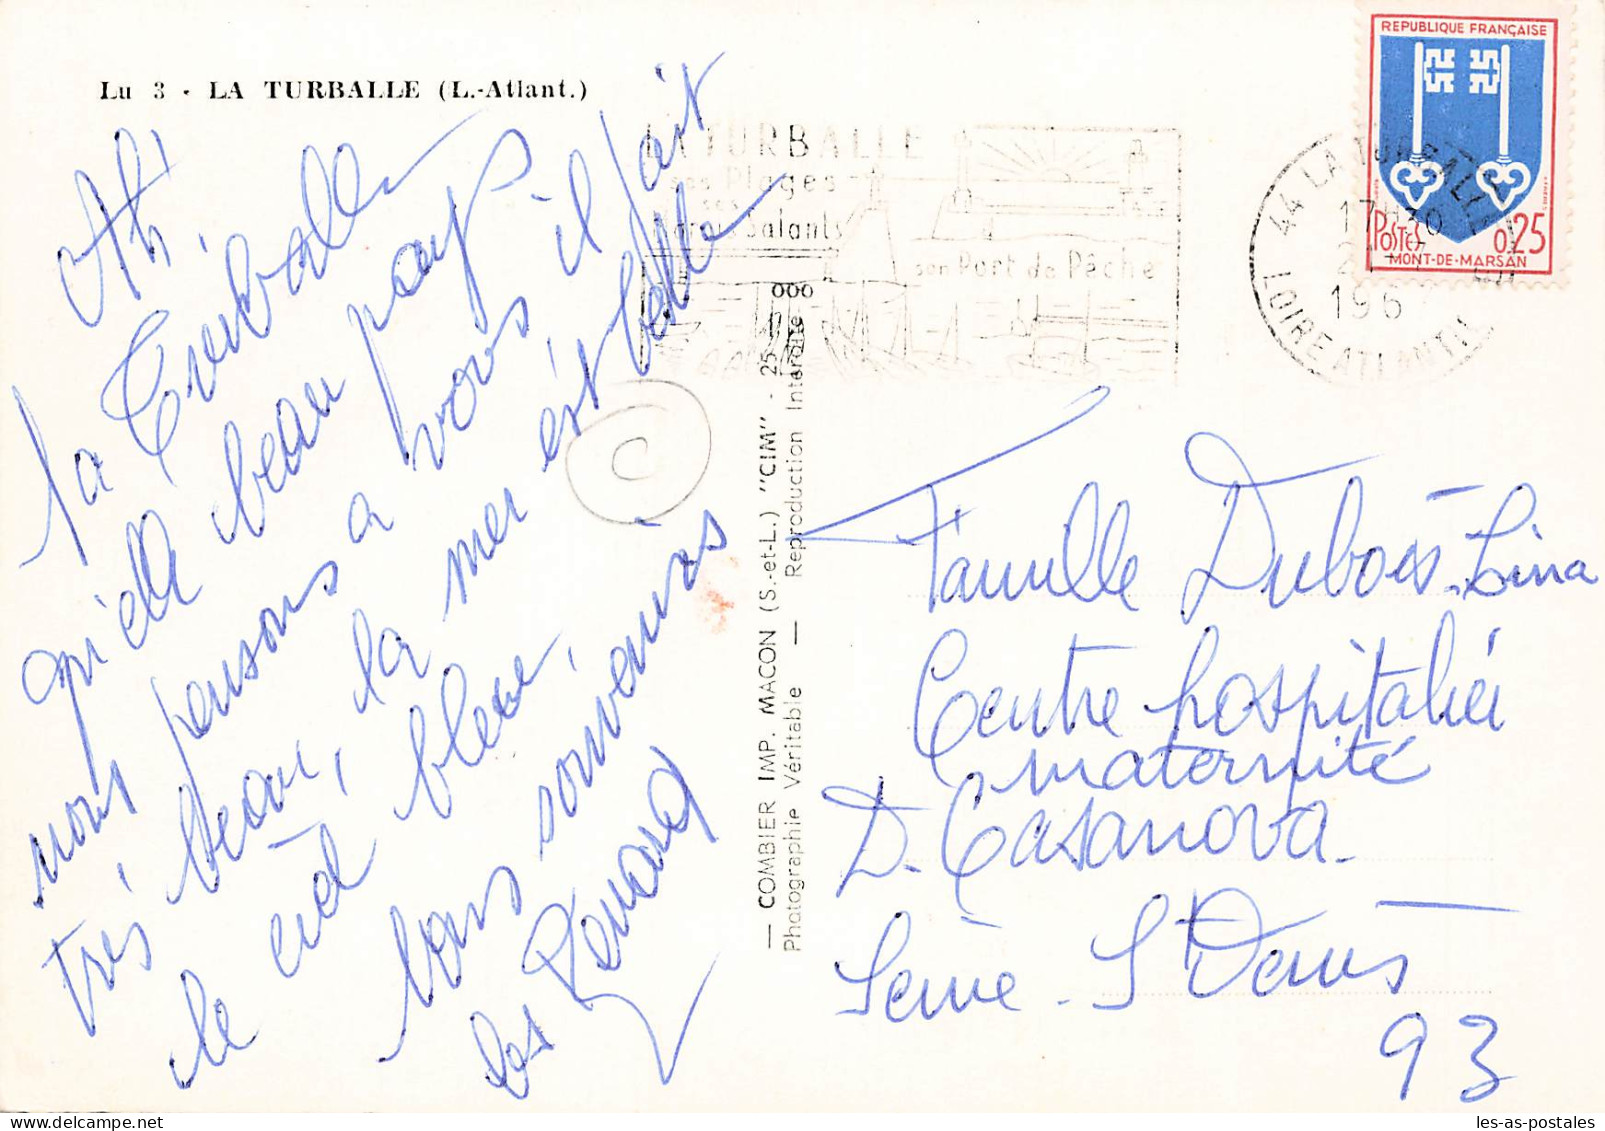 Lu 3 - LA TURBALLE (L.-Atlant.)
Ah!
la Turballe
qu'elle beau pays
nous pensons a vous il fait
très beau, la mer est belle
le ciel bleue,
bons souvenirs
les Renard
LA TURBALLE
ses Plages
ses
Marais Salants
son Port de Pêche
44 LA TURBALLE
17H30
196
LOIRE ATLANTIQUE
REPUBLIQUE FRANÇAISE
POSTES
0,25
MONT-DE-MARSAN
— COMBIER IMP. MACON (S.-et-L.) "CIM" - 25
Photographie Véritable — Reproduction Interdite
000
Famille Dubois. Lina
Centre hospitalier
maternité
D. Casanova.
Seine - St Denis
93
les-as-postales